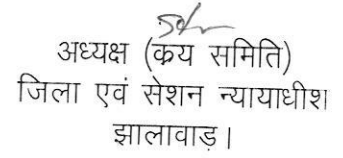 अध्यक्ष (क्रय समिति)
जिला एवं सेशन न्यायाधीश
झालावाड़।